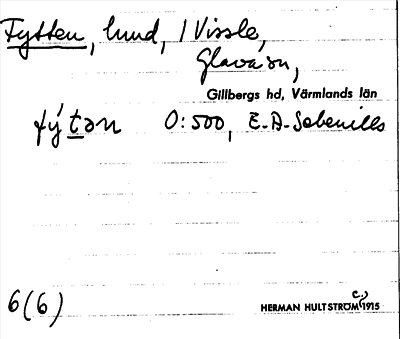 Fytten, lund, 1 Vissle,
Glava sn,
Gillbergs hd, Värmlands län
fýtən O:500,
6(6)
c.)
HERMAN HULTSTRÖM 1915